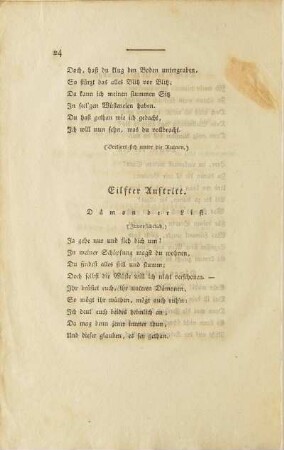 24
Doch, hast du klug den Boden untergraben,
So stürzt das alles Blitz vor Blitz,
Da kann ich meinen stummen Sitz
In sel'gen Wüsteneien haben.
Du hast gethan wie ich gedacht,
Ich will nun sehn, was du vollbracht.
(Verliert sich unter die Ruinen.)
Eilfter Auftritt.
Dämon der List.
(Zuversichtlich.)
Ja gehe nur und sieh dich um!
In meiner Schöpfung magst du wohnen,
Du findest alles still und stumm;
Doch selbst die Wüste will ich nicht verschonen. —
Ihr brüstet euch, ihr andern Dämonen,
So mögt ihr wüthen, mögt auch ruhn:
Ich deut' euch beides heimlich an;
Da mag denn jener immer thun,
Und dieser glauben, es sey gethan.